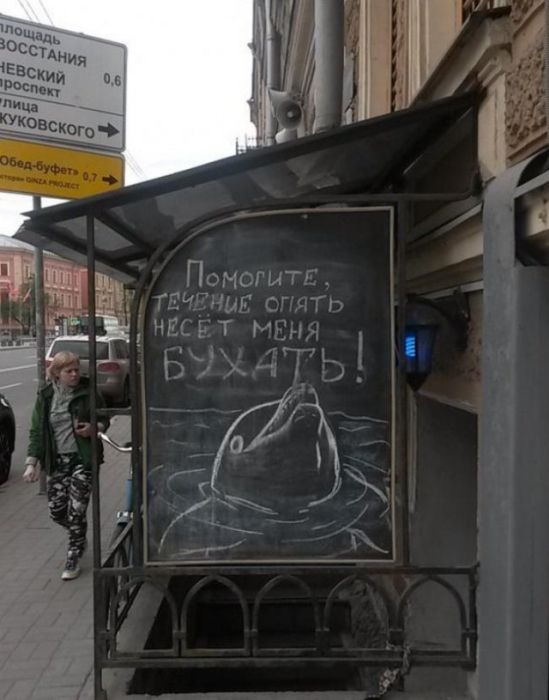 площадь
ВОССТАНИЯ
НЕВСКИЙ
проспект
0,6
улица
ЖУКОВСКОГО
Обед-буфет»
0,7
GINZA PROJECT
Помогите,
течение опять
несёт меня
БУХАТЬ!